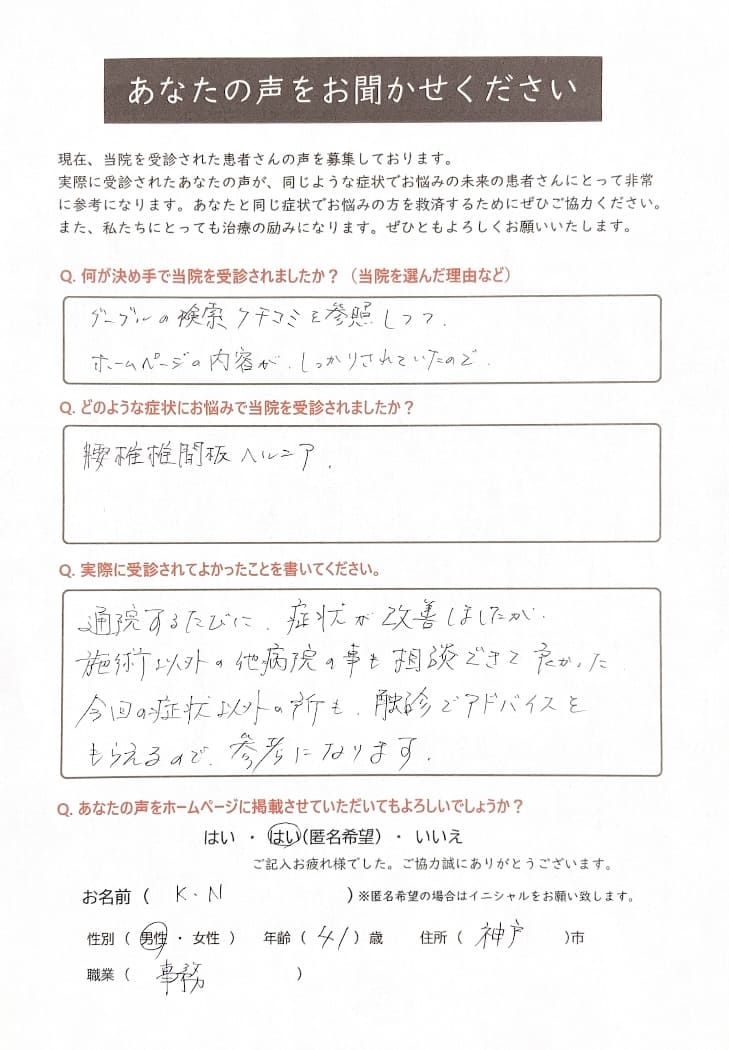 あなたの声をお聞かせください
現在、当院を受診された患者さんの声を募集しております。
実際に受診されたあなたの声が、同じような症状でお悩みの未来の患者さんにとって非常
に参考になります。あなたと同じ症状でお悩みの方を救済するためにぜひご協力ください。
また、私たちにとっても治療の励みになります。ぜひともよろしくお願いいたします。
Q. 何が決め手で当院を受診されましたか？（当院を選んだ理由など）
グーグルの検索クチコミを参照しつつ、
ホームページの内容が、しっかりされていたので、
Q. どのような症状にお悩みで当院を受診されましたか？
腰椎椎間板ヘルニア、
Q. 実際に受診されてよかったことを書いてください。
通院するたびに、症状が改善しましたが、
施術以外の他病院の事も相談できて良かった、
今回の症状以外の所も、触診でアドバイスを
もらえるので、参考になります。
Q. あなたの声をホームページに掲載させていただいてもよろしいでしょうか？
はい ・ はい(匿名希望) ・ いいえ
ご記入お疲れ様でした。ご協力誠にありがとうございます。
お名前 ( K.N ) ※匿名希望の場合はイニシャルをお願い致します。
性別 ( 男性 ・ 女性 ) 年齢 ( 41 ) 歳 住所 ( 神戸 )市
職業 ( 事務 )